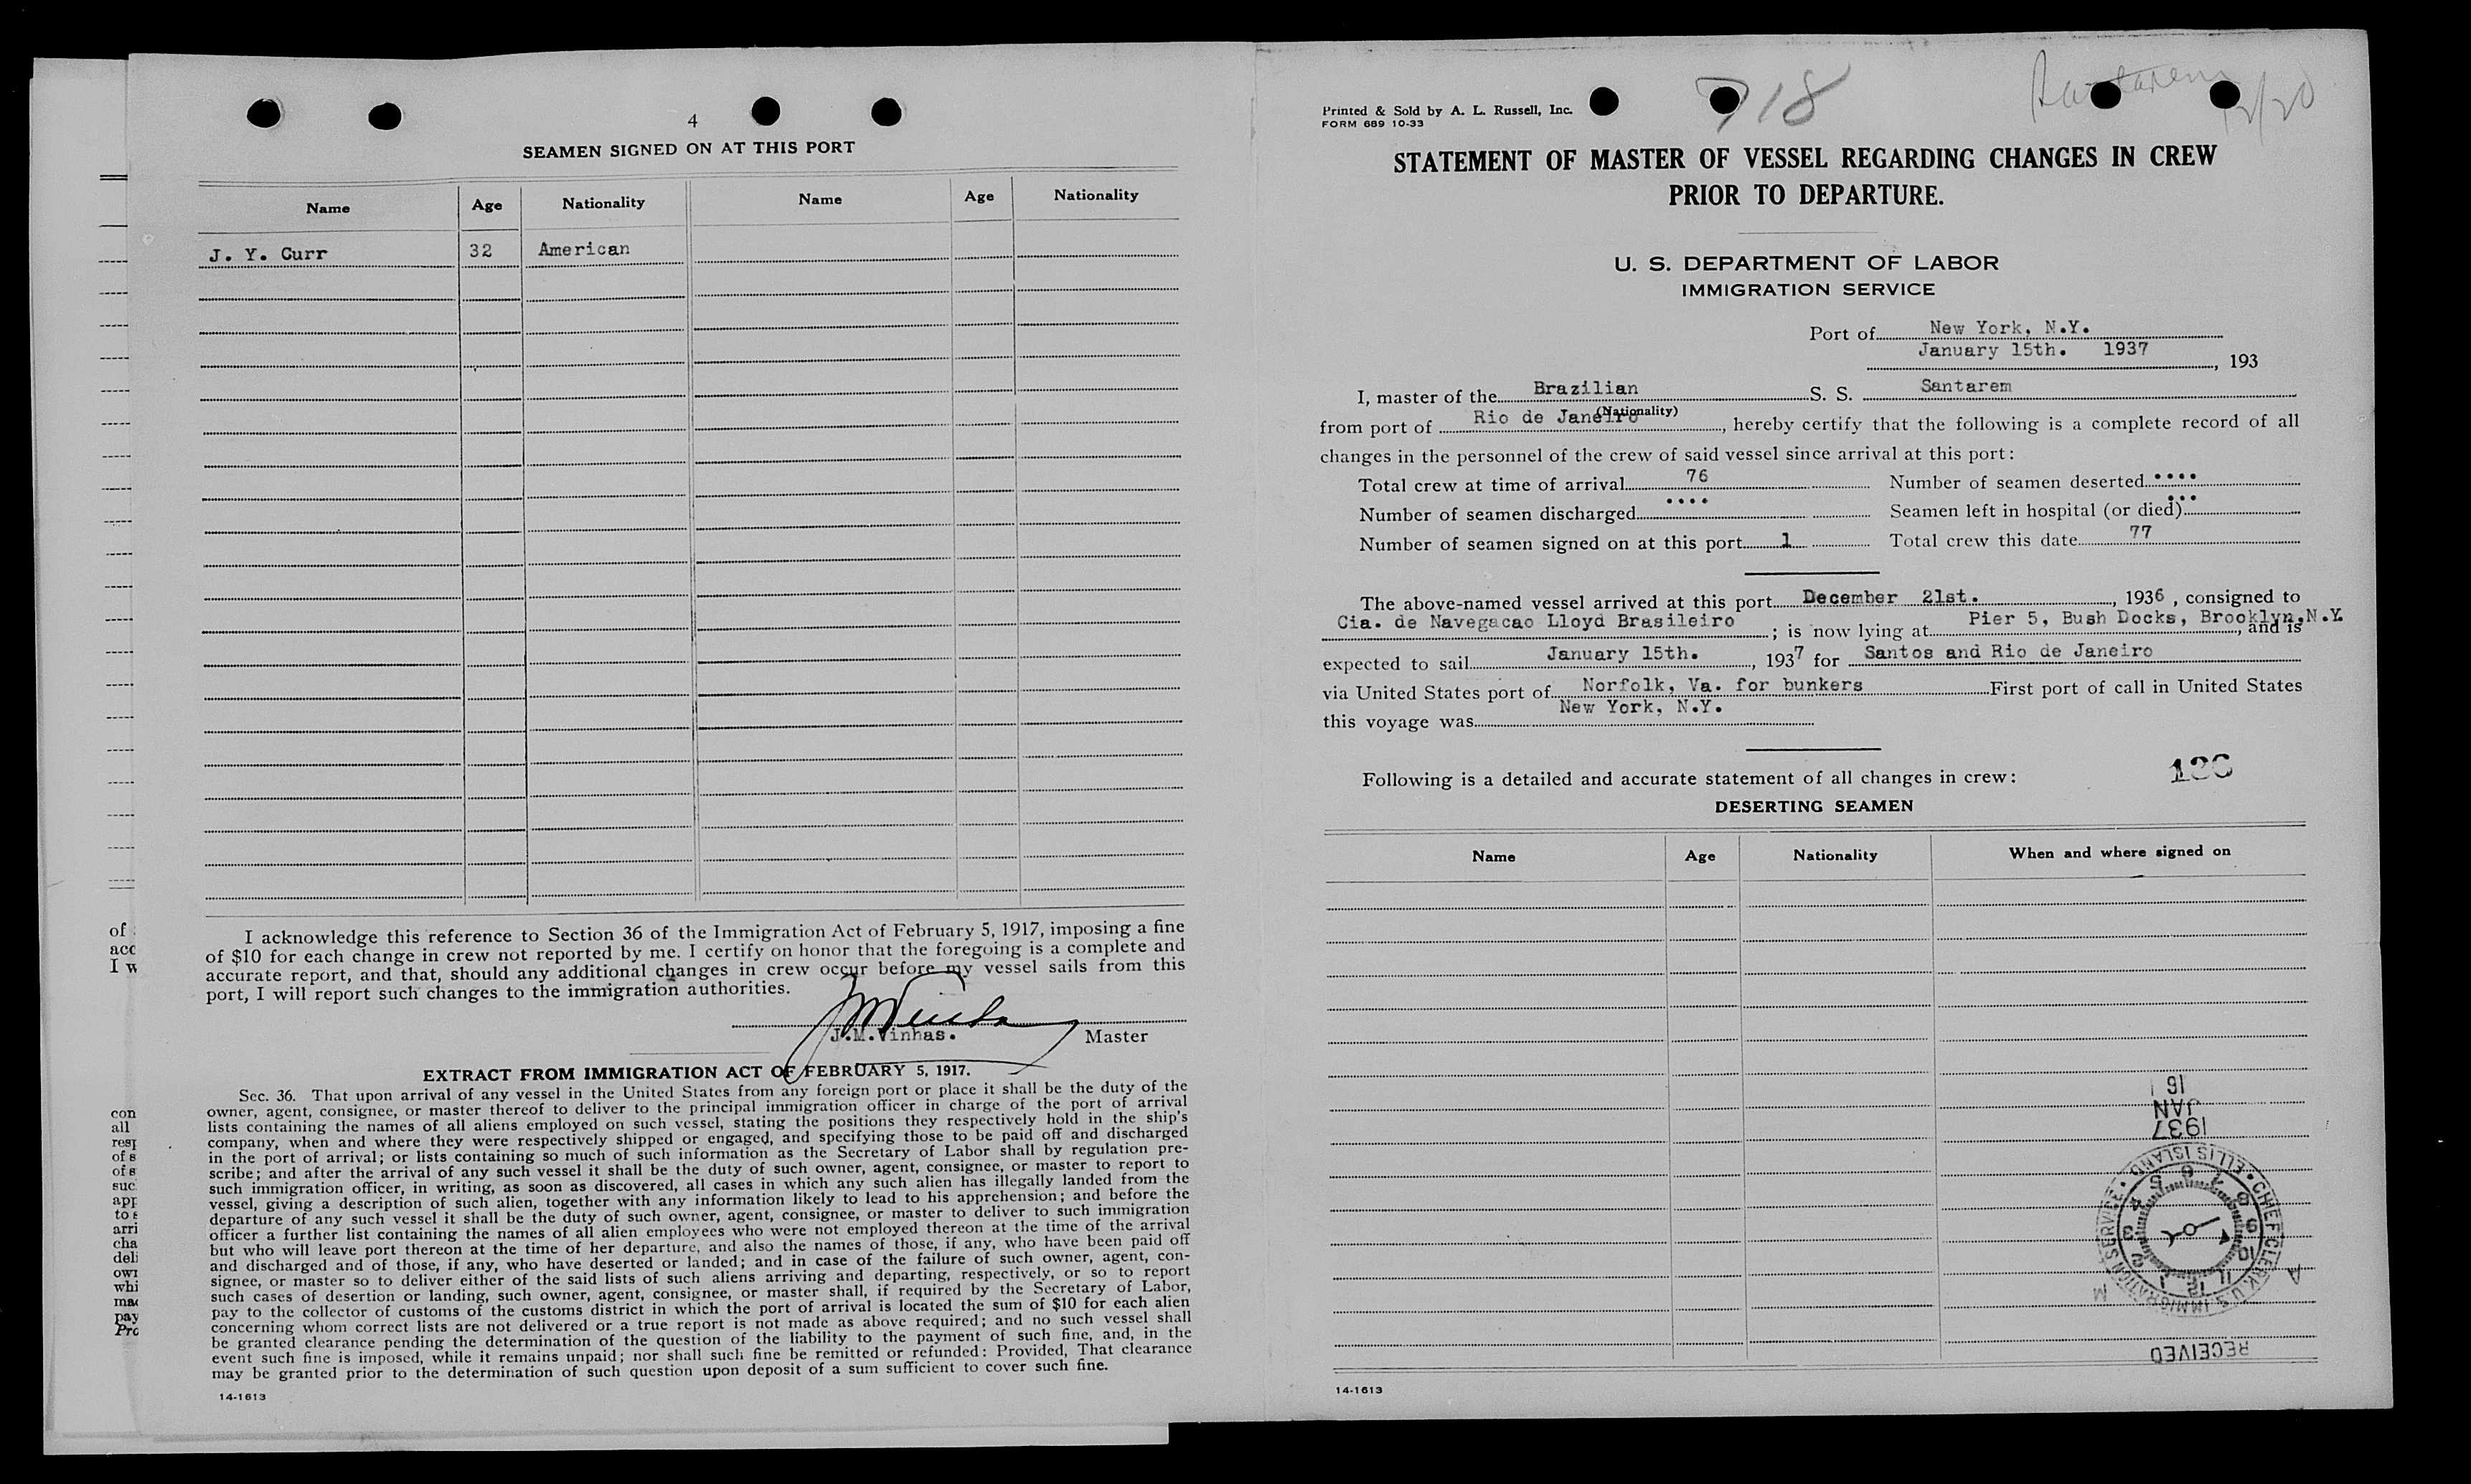 4
SEAMEN SIGNED ON AT THIS PORT
Name Age Nationality Name Age Nationality
J. Y. Curr 32 American
I acknowledge this reference to Section 36 of the Immigration Act of February 5, 1917, imposing a fine
of $10 for each change in crew not reported by me. I certify on honor that the foregoing is a complete and
accurate report, and that, should any additional changes in crew occur before my vessel sails from this
port, I will report such changes to the immigration authorities.
J.M.Vinhas. Master
EXTRACT FROM IMMIGRATION ACT OF FEBRUARY 5, 1917.
Sec. 36. That upon arrival of any vessel in the United States from any foreign port or place it shall be the duty of the
owner, agent, consignee, or master thereof to deliver to the principal immigration officer in charge of the port of arrival
lists containing the names of all aliens employed on such vessel, stating the positions they respectively hold in the ship's
company, when and where they were respectively shipped or engaged, and specifying those to be paid off and discharged
in the port of arrival; or lists containing so much of such information as the Secretary of Labor shall by regulation pre-
scribe; and after the arrival of any such vessel it shall be the duty of such owner, agent, consignee, or master to report to
such immigration officer, in writing, as soon as discovered, all cases in which any such alien has illegally landed from the
vessel, giving a description of such alien, together with any information likely to lead to his apprehension; and before the
departure of any such vessel it shall be the duty of such owner, agent, consignee, or master to deliver to such immigration
officer a further list containing the names of all alien employees who were not employed thereon at the time of the arrival
but who will leave port thereon at the time of her departure, and also the names of those, if any, who have been paid off
and discharged and of those, if any, who have deserted or landed; and in case of the failure of such owner, agent, con-
signee, or master so to deliver either of the said lists of such aliens arriving and departing, respectively, or so to report
such cases of desertion or landing, such owner, agent, consignee, or master shall, if required by the Secretary of Labor,
pay to the collector of customs of the customs district in which the port of arrival is located the sum of $10 for each alien
concerning whom correct lists are not delivered or a true report is not made as above required; and no such vessel shall
be granted clearance pending the determination of the question of the liability to the payment of such fine, and, in the
event such fine is imposed, while it remains unpaid; nor shall such fine be remitted or refunded: Provided, That clearance
may be granted prior to the determination of such question upon deposit of a sum sufficient to cover such fine.
14-1613
Printed & Sold by A. L. Russell, Inc.
FORM 689 10-33
718
Santarem
12/20
STATEMENT OF MASTER OF VESSEL REGARDING CHANGES IN CREW
PRIOR TO DEPARTURE.
U. S. DEPARTMENT OF LABOR
IMMIGRATION SERVICE
Port of New York, N.Y.
January 15th. 1937, 193
I, master of the Brazilian S. S. Santarem
(Nationality)
from port of Rio de Janeiro, hereby certify that the following is a complete record of all
changes in the personnel of the crew of said vessel since arrival at this port:
Total crew at time of arrival 76 Number of seamen deserted ....
Number of seamen discharged .... Seamen left in hospital (or died) ...
Number of seamen signed on at this port 1 Total crew this date 77
The above-named vessel arrived at this port December 21st., 1936, consigned to
Cia. de Navegacao Lloyd Brasileiro; is now lying at Pier 5, Bush Docks, Brooklyn, N.Y., and is
expected to sail January 15th., 1937 for Santos and Rio de Janeiro
via United States port of Norfolk, Va. for bunkers First port of call in United States
this voyage was New York, N.Y.
Following is a detailed and accurate statement of all changes in crew:
DESERTING SEAMEN
Name Age Nationality When and where signed on
RECEIVED
CHIEF CLERK U.S. IMMIGRATION SERVICE · ELLIS ISLAND ·
A M
1 2 3 4 5 6 7 8 9 10 11 12
1937
JAN
16
14-1613